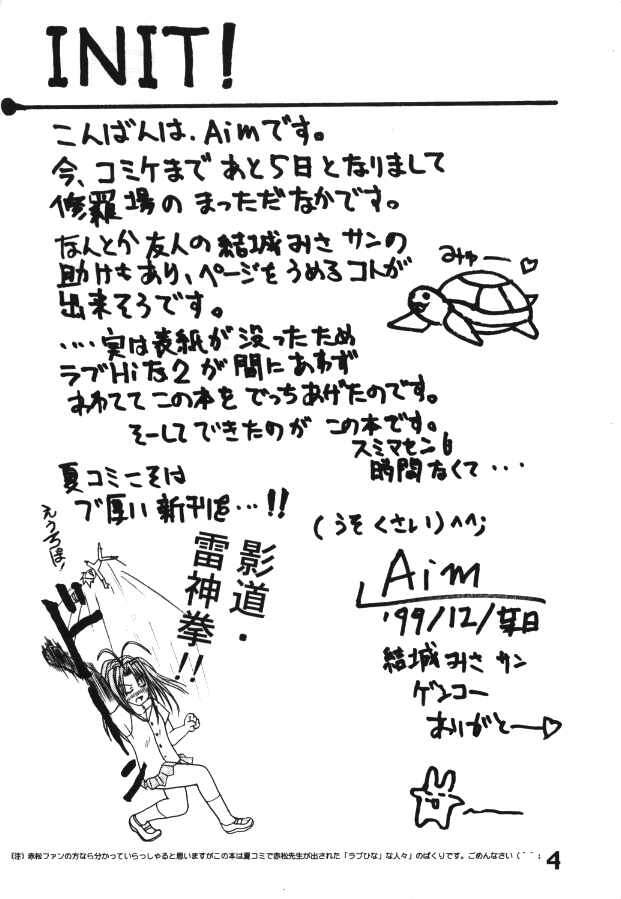 INIT!
こんばんは、Aimです。
今、コミケまであと5日となりまして
修羅場のまっただなかです。
なんとか友人の結城みさサンの
助けもあり、ページをうめるコトが
出来そうです。
‥‥実は表紙が没ったため
ラブHiな2が間にあわず
あわててこの本をでっちあげたのです。
そーしてできたのがこの本です。
スミマセン6
時間なくて・・・
みゅー♡
夏コミこそは
ブ厚い新刊を…!!
(うそくさい)^^;
えうちは!
影道・
雷神拳!!
ドーン
Aim
'99/12/某日
結城みささン
ゲンコー
ありがとー♡
(注)赤松ファンの方なら分かっていらっしゃると思いますがこの本は夏コミで赤松先生が出された「ラブひな」な人々」のぱくりです。ごめんなさい(^^;
4